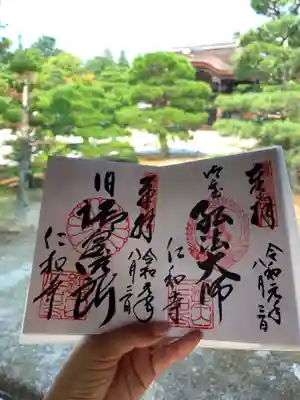 奉拝
令和元年
八月三日
御室
弘法大師
仁和寺
奉拝
令和元年
八月三日
旧御室御所
仁和寺